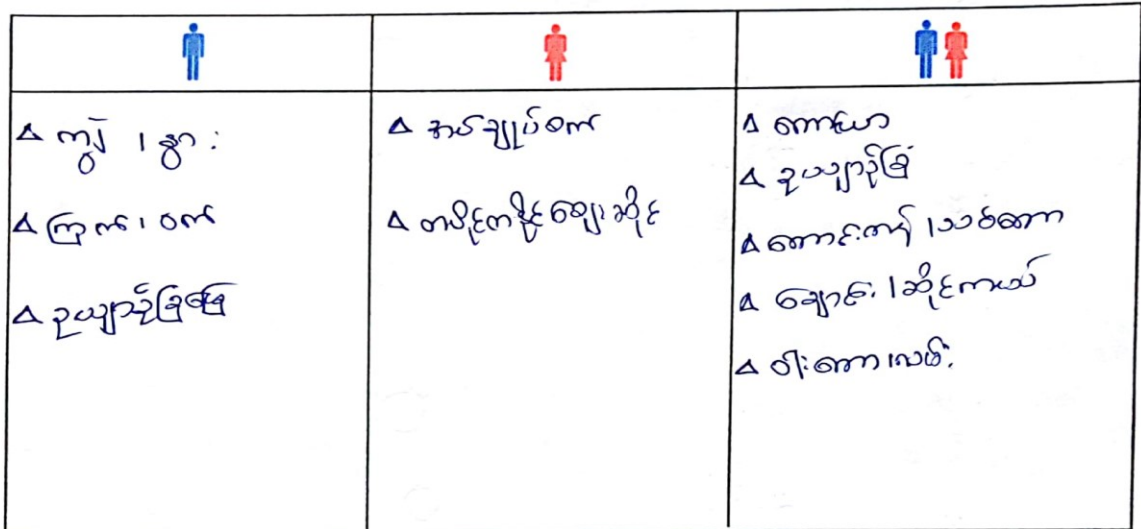 Δ ကျွဲ ၊ နွား
Δ ကြက် ၊ ဝက်
Δ ဥယျာဉ်ခြံမြေ
Δ အပ်ချုပ်စက်
Δ တပိုင်တနိုင်စျေးဆိုင်
Δ တောင်ယာ
Δ ဥယျာဉ်ခြံ
Δ တောင်းတန် ၊ သစ်တော
Δ ချောင်း ၊ ဆိုင်ကယ်
Δ ဝါးတော ၊ လမ်း